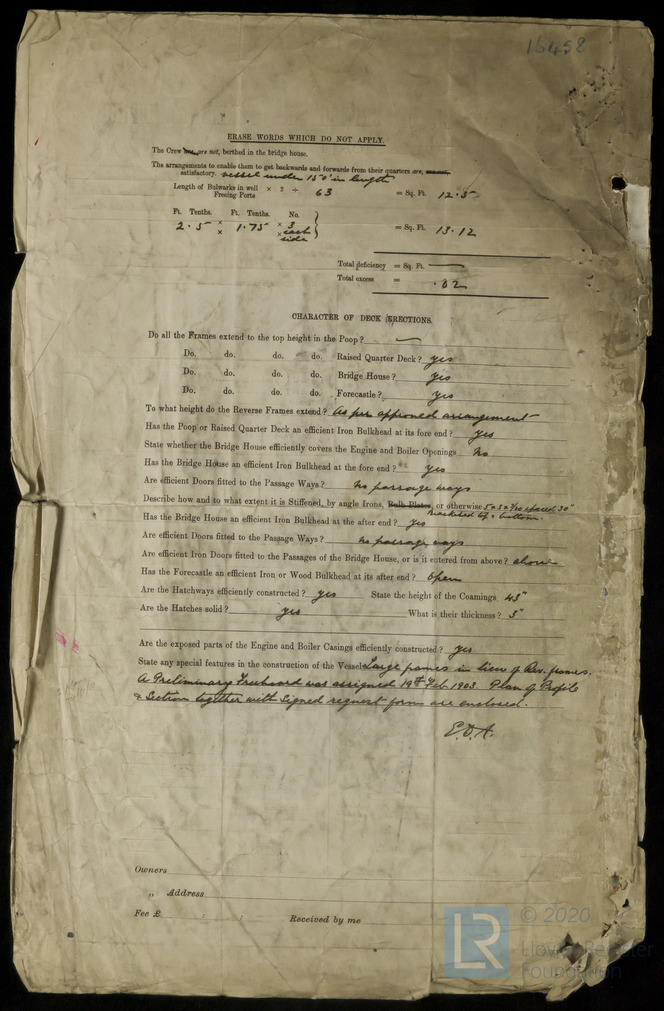 16458
ERASE WORDS WHICH DO NOT APPLY.
The Crew are, are not, berthed in the bridge house.
The arrangements to enable them to get backwards and forwards from their quarters are,
satisfactory. vessel under 150' in length
Length of Bulwarks in well × 2 ÷ 63 = Sq. Ft. 12.3
Freeing Ports
Ft. Tenths. Ft. Tenths. No.
2.5 × 1.75 × 3 = Sq. Ft. 13.12
× × each
side
Total deficiency = Sq. Ft. —
Total excess = .82
CHARACTER OF DECK ERECTIONS.
Do all the Frames extend to the top height in the Poop? —
Do. do. do. do. Raised Quarter Deck? yes
Do. do. do. do. Bridge House? yes
Do. do. do. do. Forecastle? yes
To what height do the Reverse Frames extend? As per approved arrangement
Has the Poop or Raised Quarter Deck an efficient Iron Bulkhead at its fore end? yes
State whether the Bridge House efficiently covers the Engine and Boiler Openings no
Has the Bridge House an efficient Iron Bulkhead at the fore end? yes
Are efficient Doors fitted to the Passage Ways? no passage ways
Describe how and to what extent it is Stiffened, by angle Irons, Bulb Plates, or otherwise spaced 30"
bracketed top & bottom.
Has the Bridge House an efficient Iron Bulkhead at the after end? yes
Are efficient Doors fitted to the Passage Ways? no passage ways
Are efficient Iron Doors fitted to the Passages of the Bridge House, or is it entered from above? above
Has the Forecastle an efficient Iron or Wood Bulkhead at its after end? open
Are the Hatchways efficiently constructed? yes State the height of the Coamings 43"
Are the Hatches solid? yes What is their thickness? 3"
Are the exposed parts of the Engine and Boiler Casings efficiently constructed? yes
State any special features in the construction of the Vessel Large frames in lieu of Rev. frames.
A Preliminary Freeboard was assigned 19th Feb. 1903. Plan of Profile
& Section together with signed request form are enclosed.
E.D.A.
Owners
„ Address
Fee £ : : Received by me
LR
© 2020
Lloyd's Register
Foundation